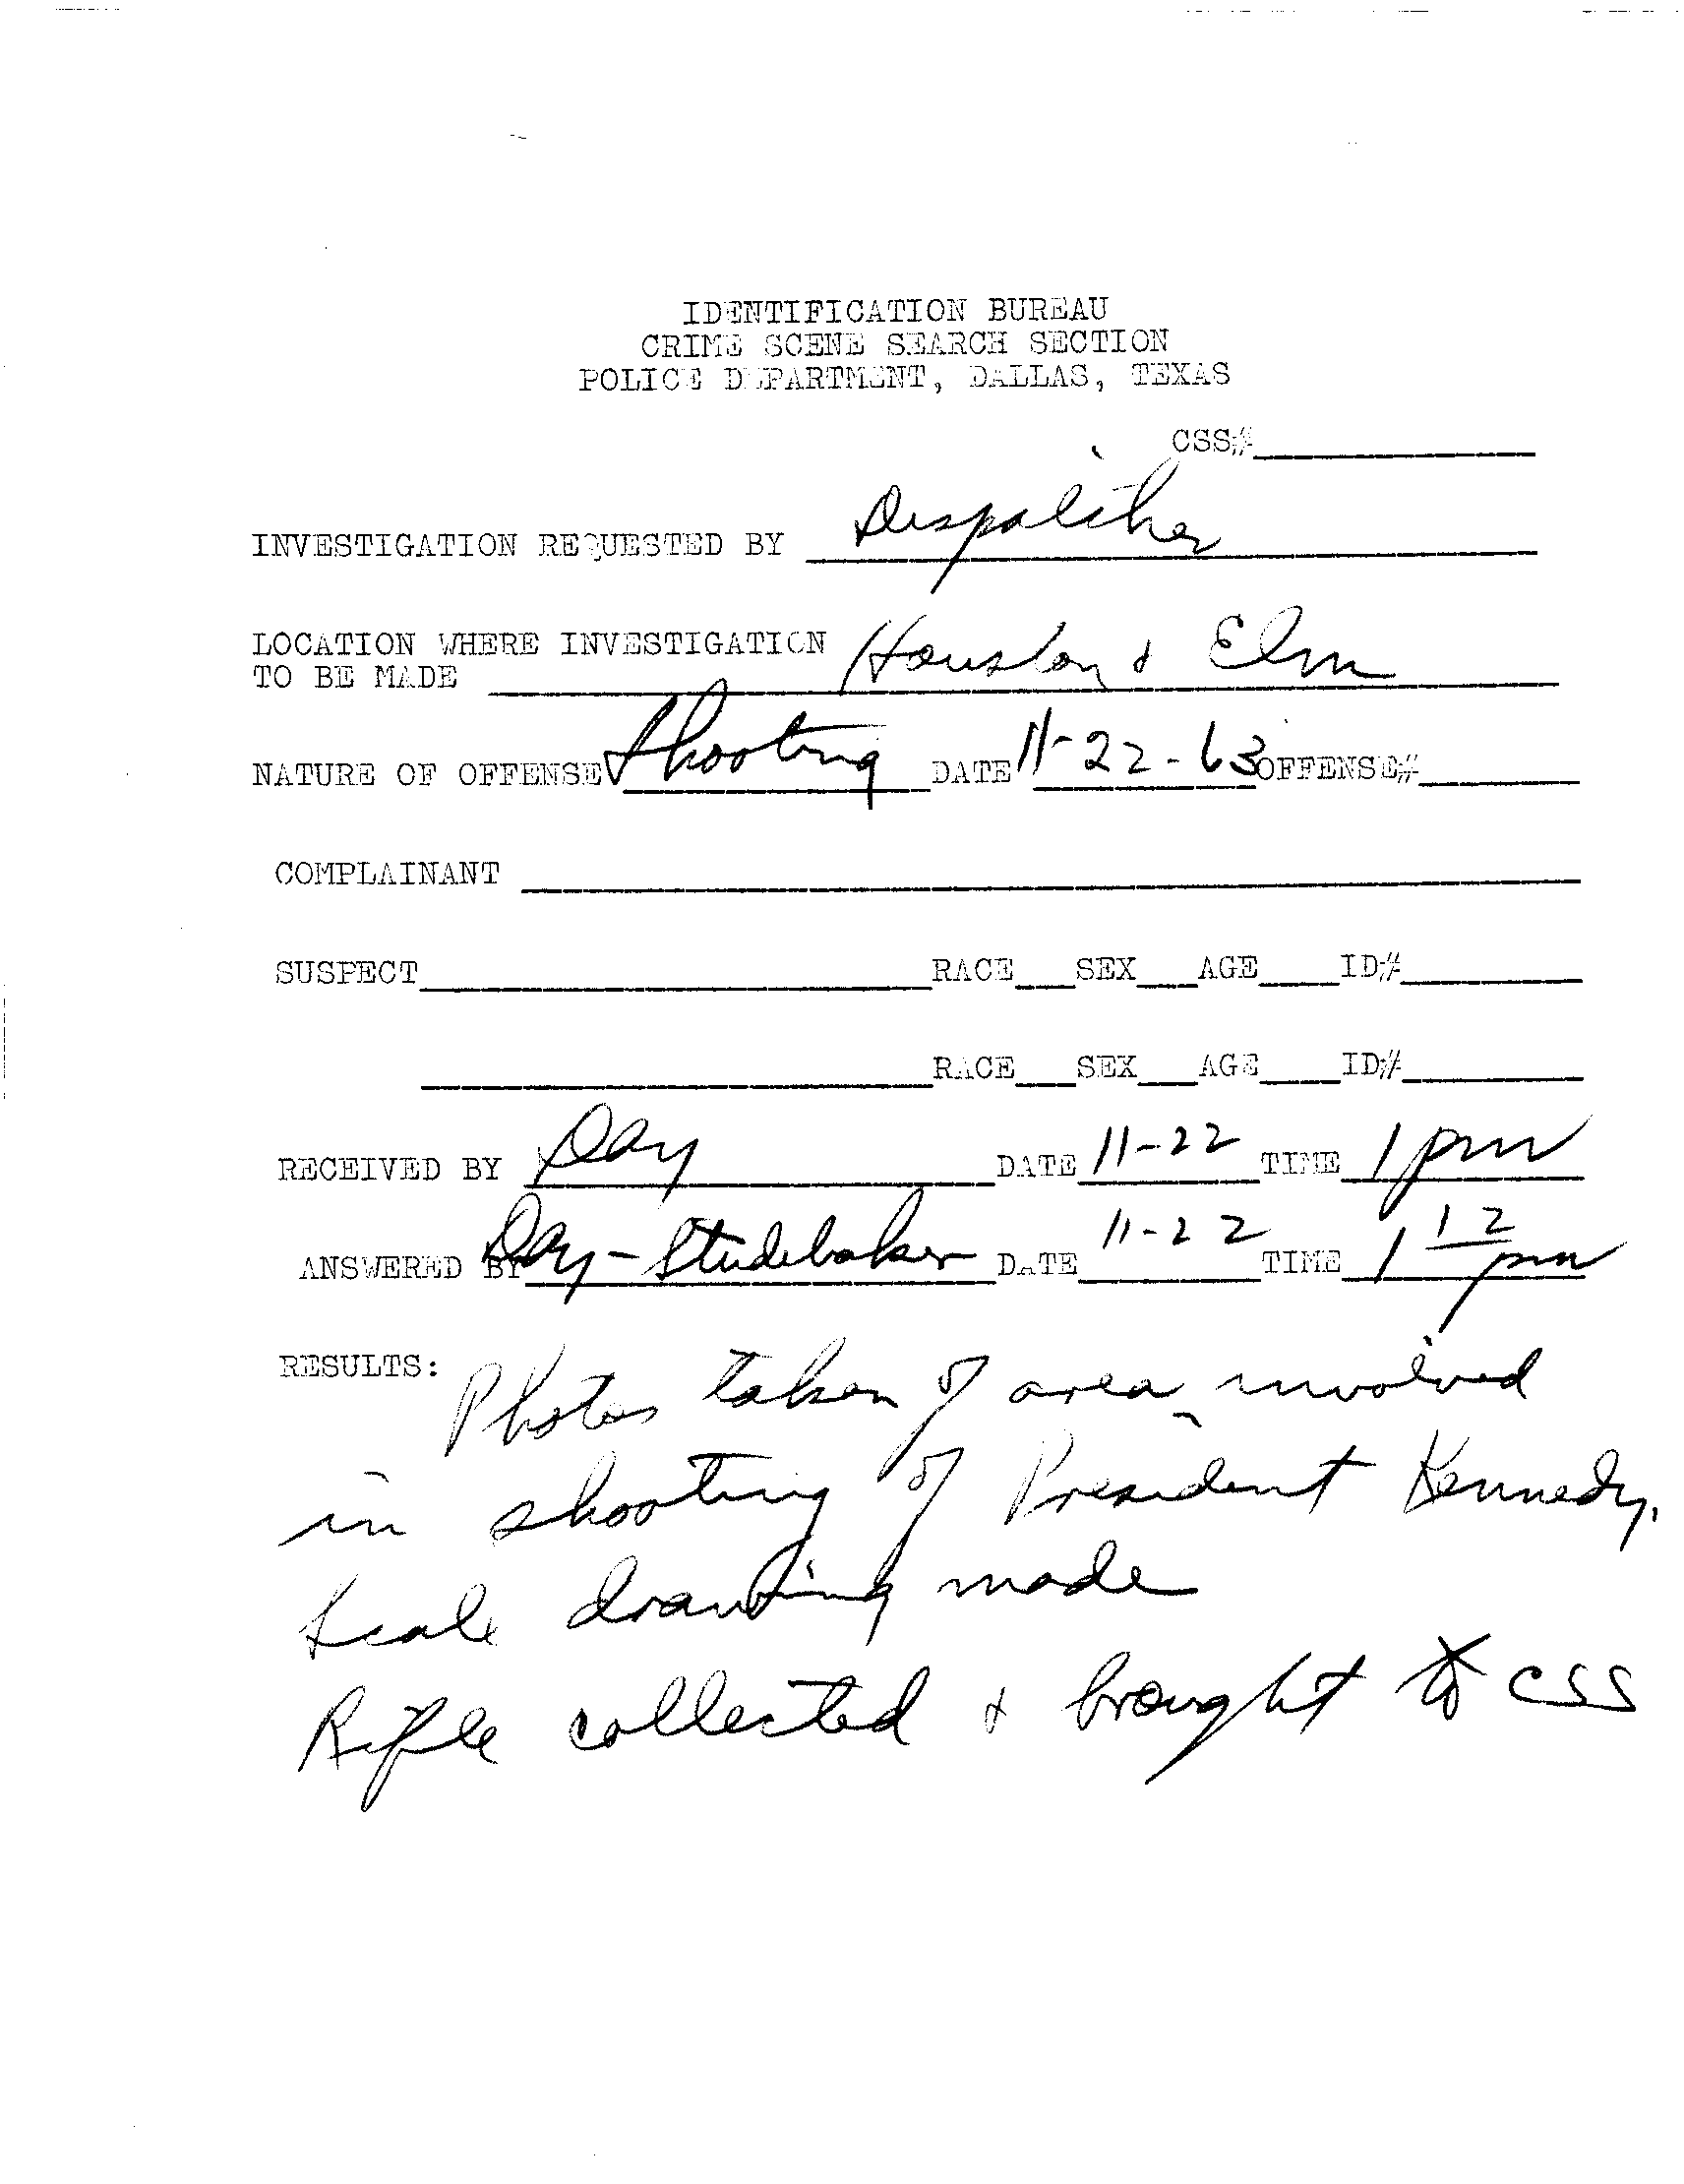 IDENTIFICATION BUREAU
CRIME SCENE SEARCH SECTION
POLICE DEPARTMENT, DALLAS, TEXAS
CSS#
INVESTIGATION REQUESTED BY Dispatcher
LOCATION WHERE INVESTIGATION
TO BE MADE Houston & Elm
NATURE OF OFFENSE Shooting DATE 11-22-63 OFFENSE#
COMPLAINANT
SUSPECT RACE SEX AGE ID#
RACE SEX AGE ID#
RECEIVED BY Day DATE 11-22 TIME 1 pm
ANSWERED BY Day-Studebaker DATE 11-22 TIME 1 12 pm
RESULTS: Photos taken of area involved
in shooting of President Kennedy.
Scale drawing made
Rifle collected & brought to CSS